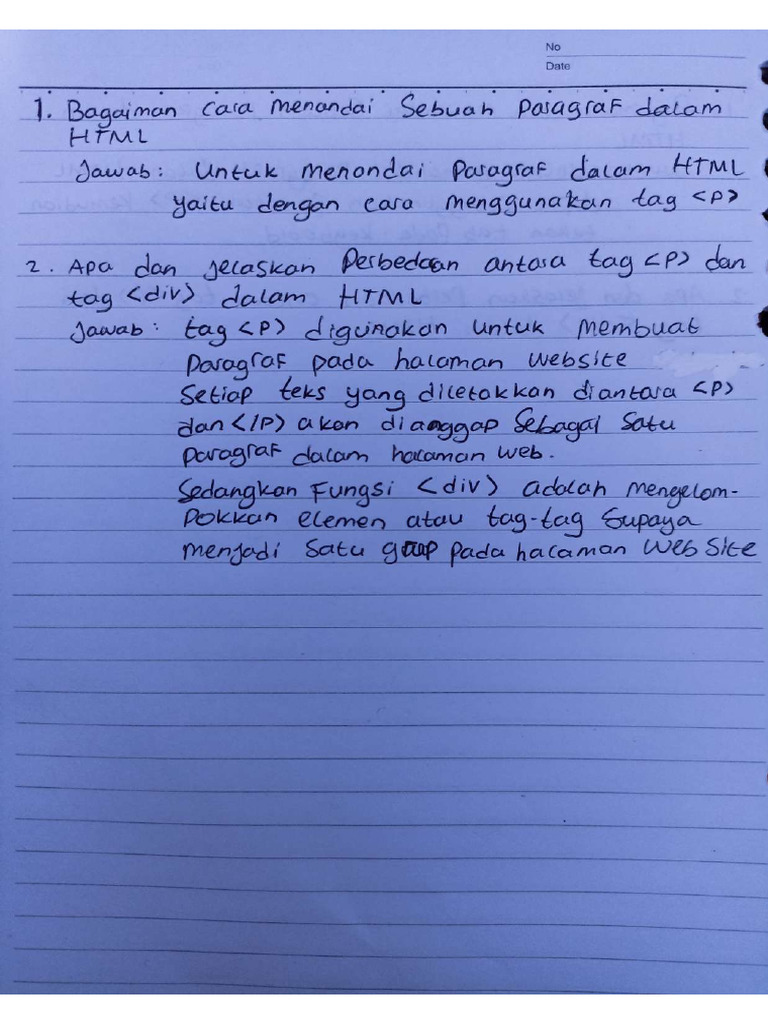 No
Date
1. Bagaiman cara menandai sebuah paragraf dalam
HTML
Jawab: Untuk menandai paragraf dalam HTML
yaitu dengan cara menggunakan tag <P>
2. Apa dan jelaskan Perbedaan antara tag <P> dan
tag <div> dalam HTML
Jawab: tag <P> digunakan untuk membuat
paragraf pada halaman website
Setiap teks yang diletakkan diantara <P>
dan </P> akan dianggap sebagai satu
paragraf dalam halaman web.
Sedangkan Fungsi <div> adalah mengelom-
pokkan elemen atau tag-tag supaya
menjadi satu pada halaman Web Site